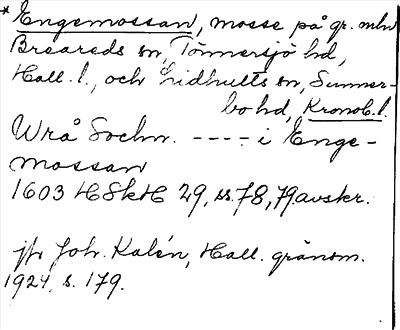 * Engemossan, mosse på gr. mln
Breareds sn, Tönnersjö hd,
Hall. l., och Lidhults sn, Sunner-
bo hd, Kronob. l.
Wrå Sochn. ---- i Enge-
mossan
1603 HSkH 29, ss. 78, 79 avskr.
jfr Joh. Kalén, Hall. gränsm.
1924, s. 179.